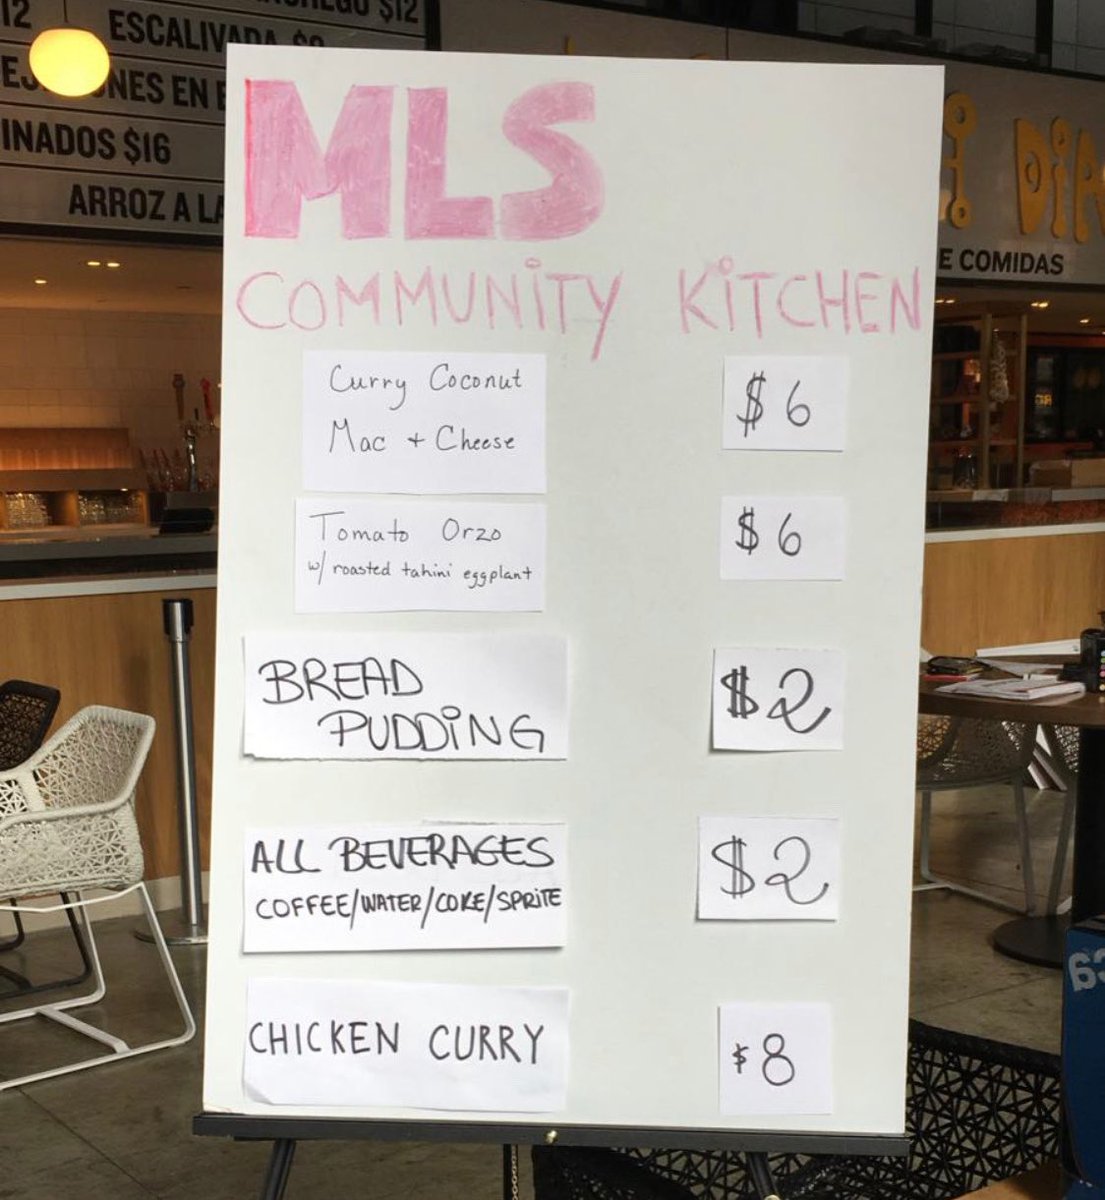 12
$12
ESCALIVADA $9
NES EN
INADOS $16
ARROZ A LA
DIA
E COMIDAS
MLS
COMMUNITY KITCHEN
Curry Coconut
Mac + Cheese
$6
Tomato Orzo
w/ roasted tahini eggplant
$6
BREAD
PUDDING
$2
ALL BEVERAGES
COFFEE/WATER/COKE/SPRITE
$2
CHICKEN CURRY
$8